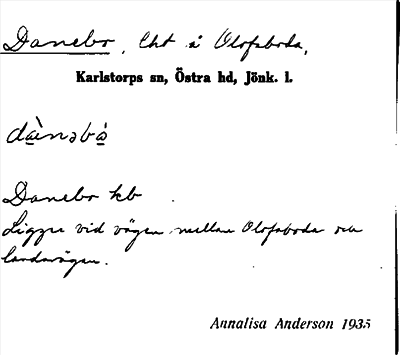 Danebo, Lht å Olofsboda,
Karlstorps sn, Östra hd, Jönk. l.
dànəbò
Danebo kb
Ligger vid vägen mellan Olofsboda och
landsvägen.
Annalisa Anderson 1935